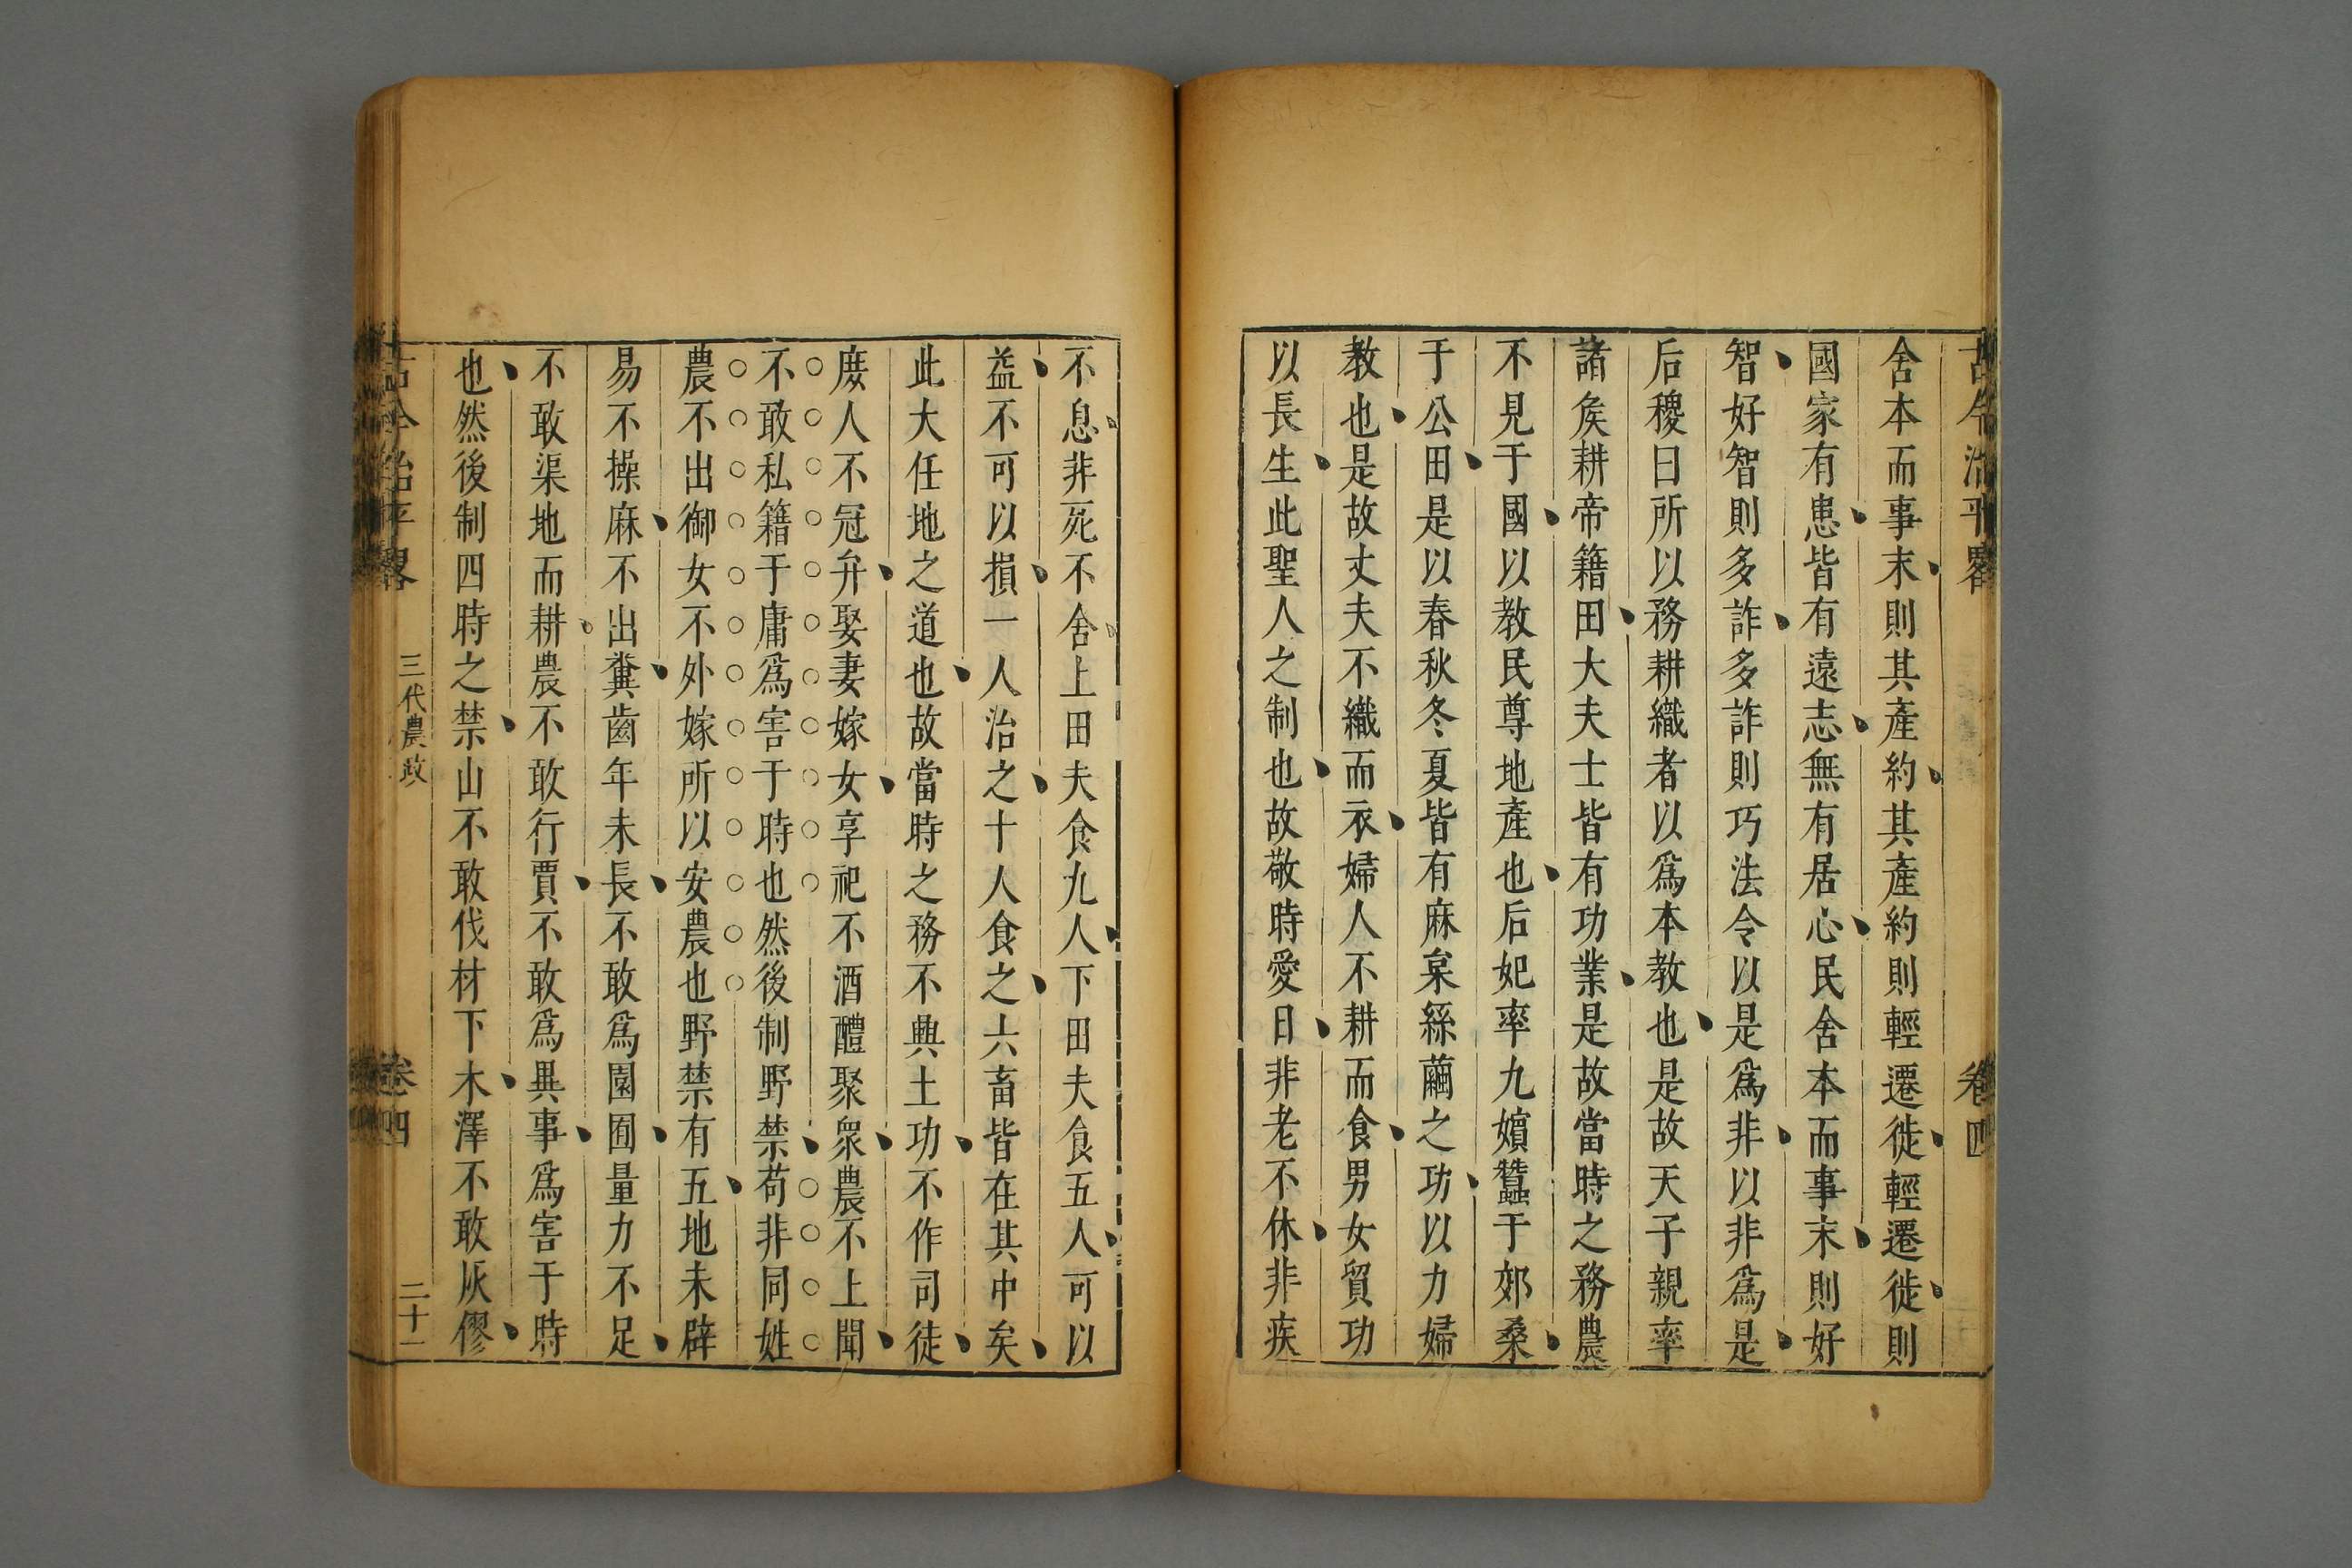 古今治平畧 卷四
舍本而事末則其產約其產約則輕遷徙輕遷徙則
國家有患皆有遠志無有居心民舍本而事末則好
智好智則多詐多詐則巧法令以是爲非以非爲是
后稷曰所以務耕織者以爲本教也是故天子親率
諸矦耕帝籍田大夫士皆有功業是故當時之務農
不見于國以教民尊地產也后妃率九嬪蠶于郊桑
于公田是以春秋冬夏皆有麻枲絲繭之功以力婦
教也是故丈夫不織而衣婦人不耕而食男女貿功
以長生此聖人之制也故敬時愛日非老不休非疾
不息非死不舍上田夫食九人下田夫食五人可以
益不可以損一人治之十人食之六畜皆在其中矣
此大任地之道也故當時之務不興土功不作司徒
庻人不冠弁娶妻嫁女享祀不酒醴聚衆農不上聞
不敢私籍于庸爲害于時也然後制野禁苟非同姓
農不出御女不外嫁所以安農也野禁有五地未辟
易不操麻不出糞齒年未長不敢爲園囿量力不足
不敢渠地而耕農不敢行賈不敢爲異事爲害于時
也然後制四時之禁山不敢伐材下木澤不敢灰僇
古今治平畧 三代農政 卷四 二十一